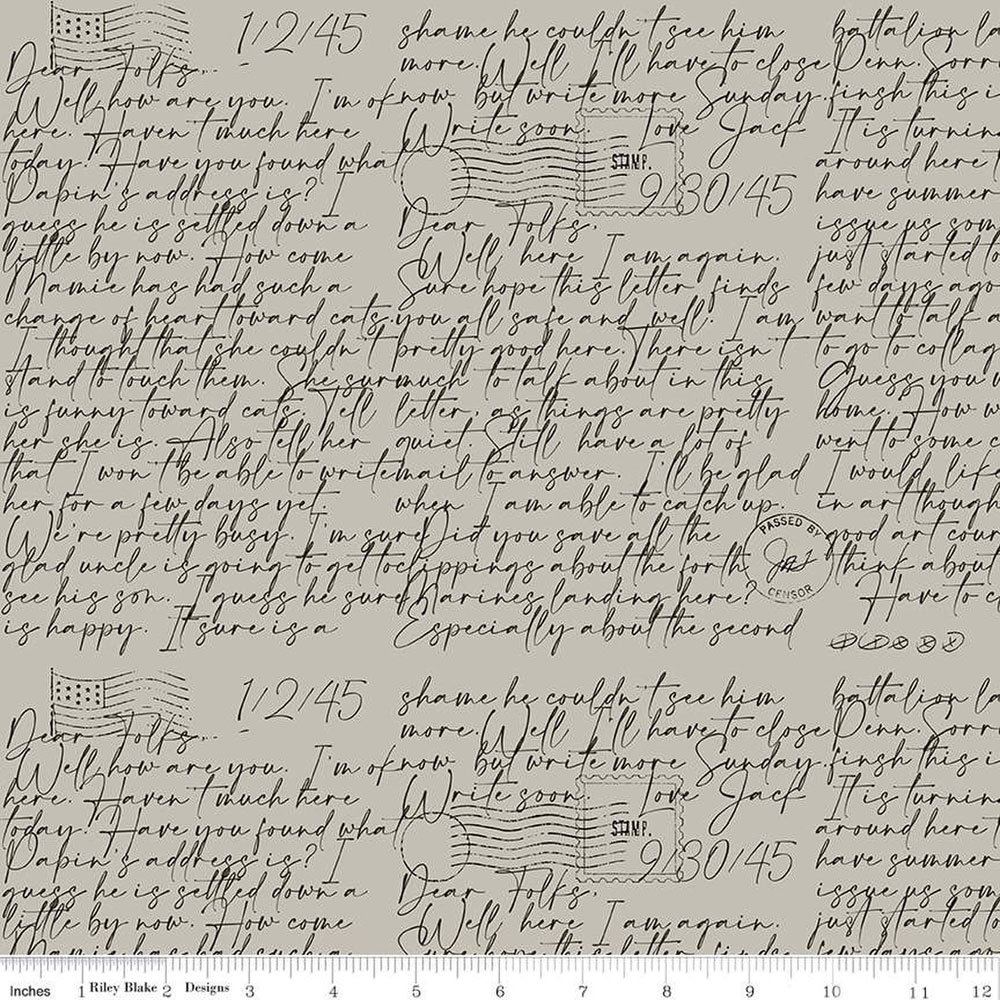 1/2/45
Dear Folks.
Well how are you. I'm ok
here. Haven't much here
today. Have you found what
Papin's address is? I
guess he is settled down a
little by now. How come
Mamie has had such a
change of heart toward cats.
I thought that she couldn't
stand to touch them. She sur
is funny toward cats. Tell
her she is. Also tell her
that I won't be able to write
her for a few days yet.
We're pretty busy. I'm sure
glad uncle is going to get to
see his son. I guess he sure
is happy. It sure is a
shame he couldn't see him
more. Well I'll have to close
now but write more Sunday.
Write soon. Love Jack
STAMP.
9/30/45
Dear Folks.
Well here I am again.
Sure hope this letter finds
you all safe and well. I am
pretty good here. There isn't
much to talk about in this
letter, as things are pretty
quiet. Still have a lot of
mail to answer. I'll be glad
when I am able to catch up.
Did you save all the
clippings about the forth
Marines landing here?
Especially about the second
battalion la
Penn. Sorr
finsh this i
It is turnin
around here
have summer
issue us som
just started to
few days ago
want to talk a
to go to collag
Guess you w
home. How w
went to some c
I would lik
in art though
good art cour
think about
Have to c
PASSED BY
CENSOR
1/2/45
Dear Folks.
Well how are you. I'm ok
here. Haven't much here
today. Have you found what
Papin's address is? I
guess he is settled down a
little by now. How come
Mamie has had such a
shame he couldn't see him
more. Well I'll have to close
now but write more Sunday.
Write soon. Love Jack
STAMP.
9/30/45
Dear Folks.
Well here I am again.
Sure hope this letter finds
battalion la
Penn. Sorr
finsh this i
It is turnin
around here
have summer
issue us som
just started to
few days ago
Inches 1 Riley Blake 2 Designs 3 4 5 6 7 8 9 10 11 12